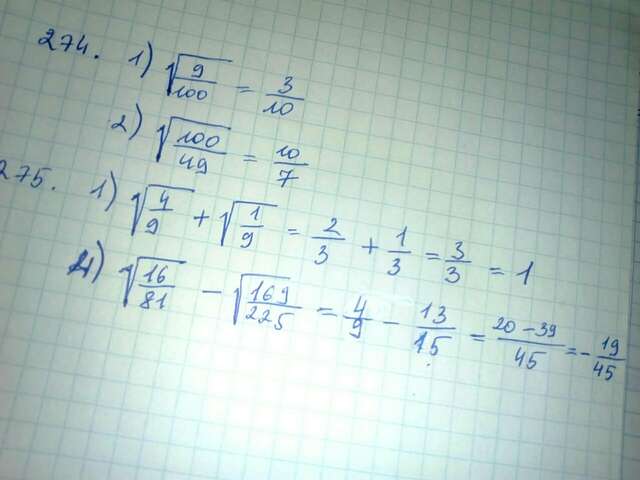 274. 1) √(9/100) = 3/10
2) √(100/49) = 10/7
275. 1) √(4/9) + √(1/9) = 2/3 + 1/3 = 3/3 = 1
4) √(16/81) - √(169/225) = 4/9 - 13/15 = (20-39)/45 = -19/45